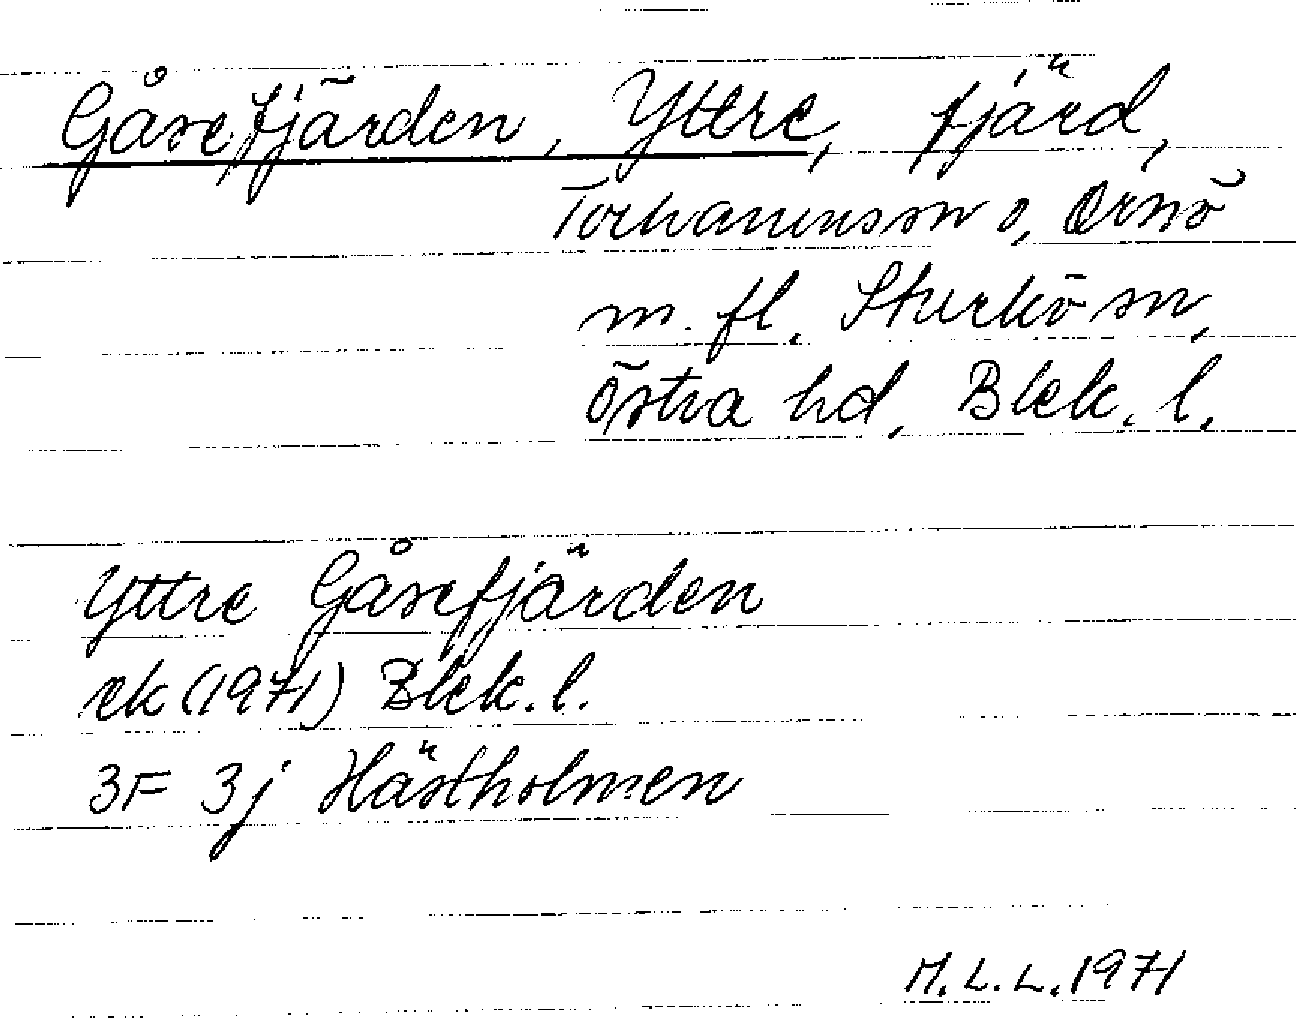 Gåsefjärden, Yttre, fjärd,
Torhamns sn o, Ornö
m. fl. Sturkö sn,
Östra hd, Blek. l.
Yttre Gåsefjärden
ek (1971) Blek. l.
3F 3j Hästholmen
M.L.L. 1971